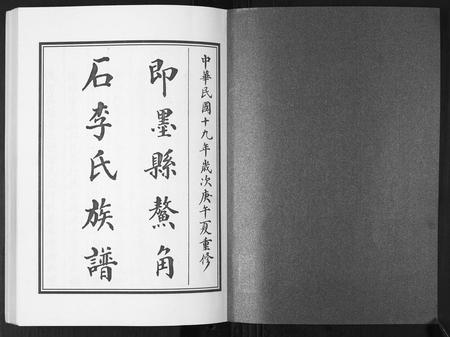 中華民國十九年歲次庚午夏重修
即墨縣鰲角
石李氏族譜